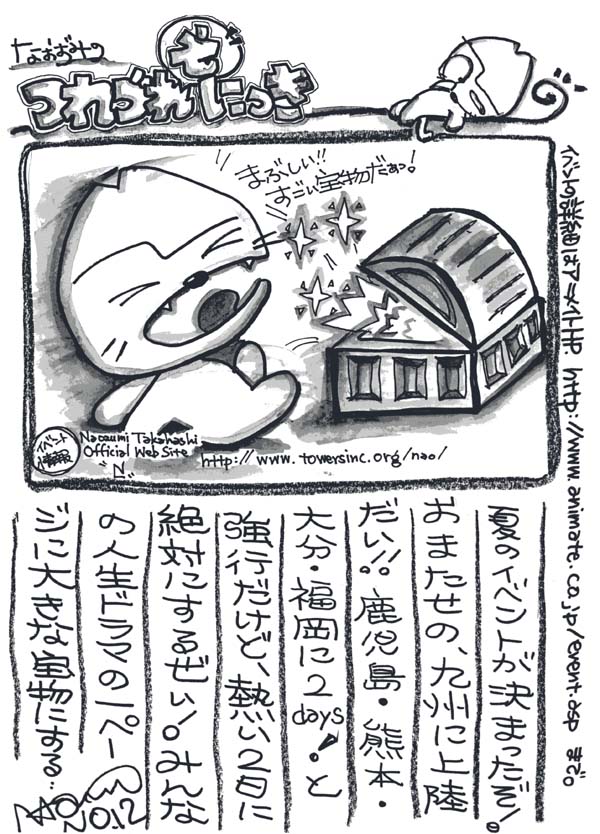 なおずみの
つれづれ
ぜ
にっき
まぶしい!!
すごい宝物だぁっ!
イベント
情報
Naozumi Takahashi
Official Web Site
"N"
http://www.towersinc.org/nao/
イベントの詳細はアニメイトHP http://www.animate.co.jp/event.asp まで。
夏のイベントが決まったぞ!
おまたせの、九州に上陸
だい!! 鹿児島・熊本・
大分・福岡に2days!。と
強行だけど、熱い2日に
絶対にするぜい!。みんな
の人生ドラマの1ペー
ジに大きな宝物にする…
NAO
NO.12